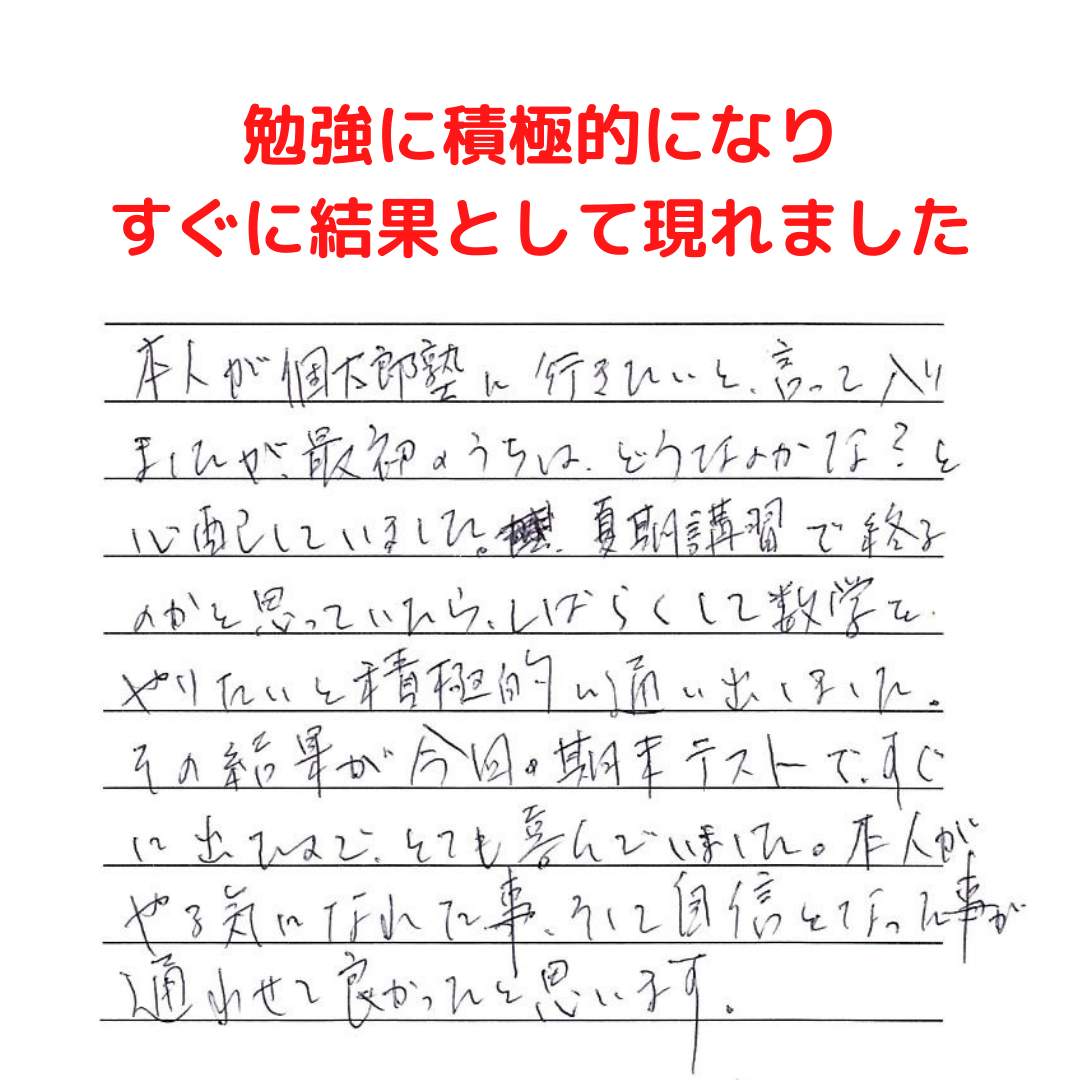 勉強に積極的になり
すぐに結果として現れました
本人が個太郎塾に行きたいと、言って入り
ましたが、最初のうちは、どうなのかな？と
心配していました。夏期講習で終る
のかと思っていたら、しばらくして数学を
やりたいと積極的に通い出しました。
その結果が今回の期末テストで、すぐ
に出たので、とても喜んでいました。本人が
やる気になれた事、そして自信となった事が
通わせて良かったと思います。